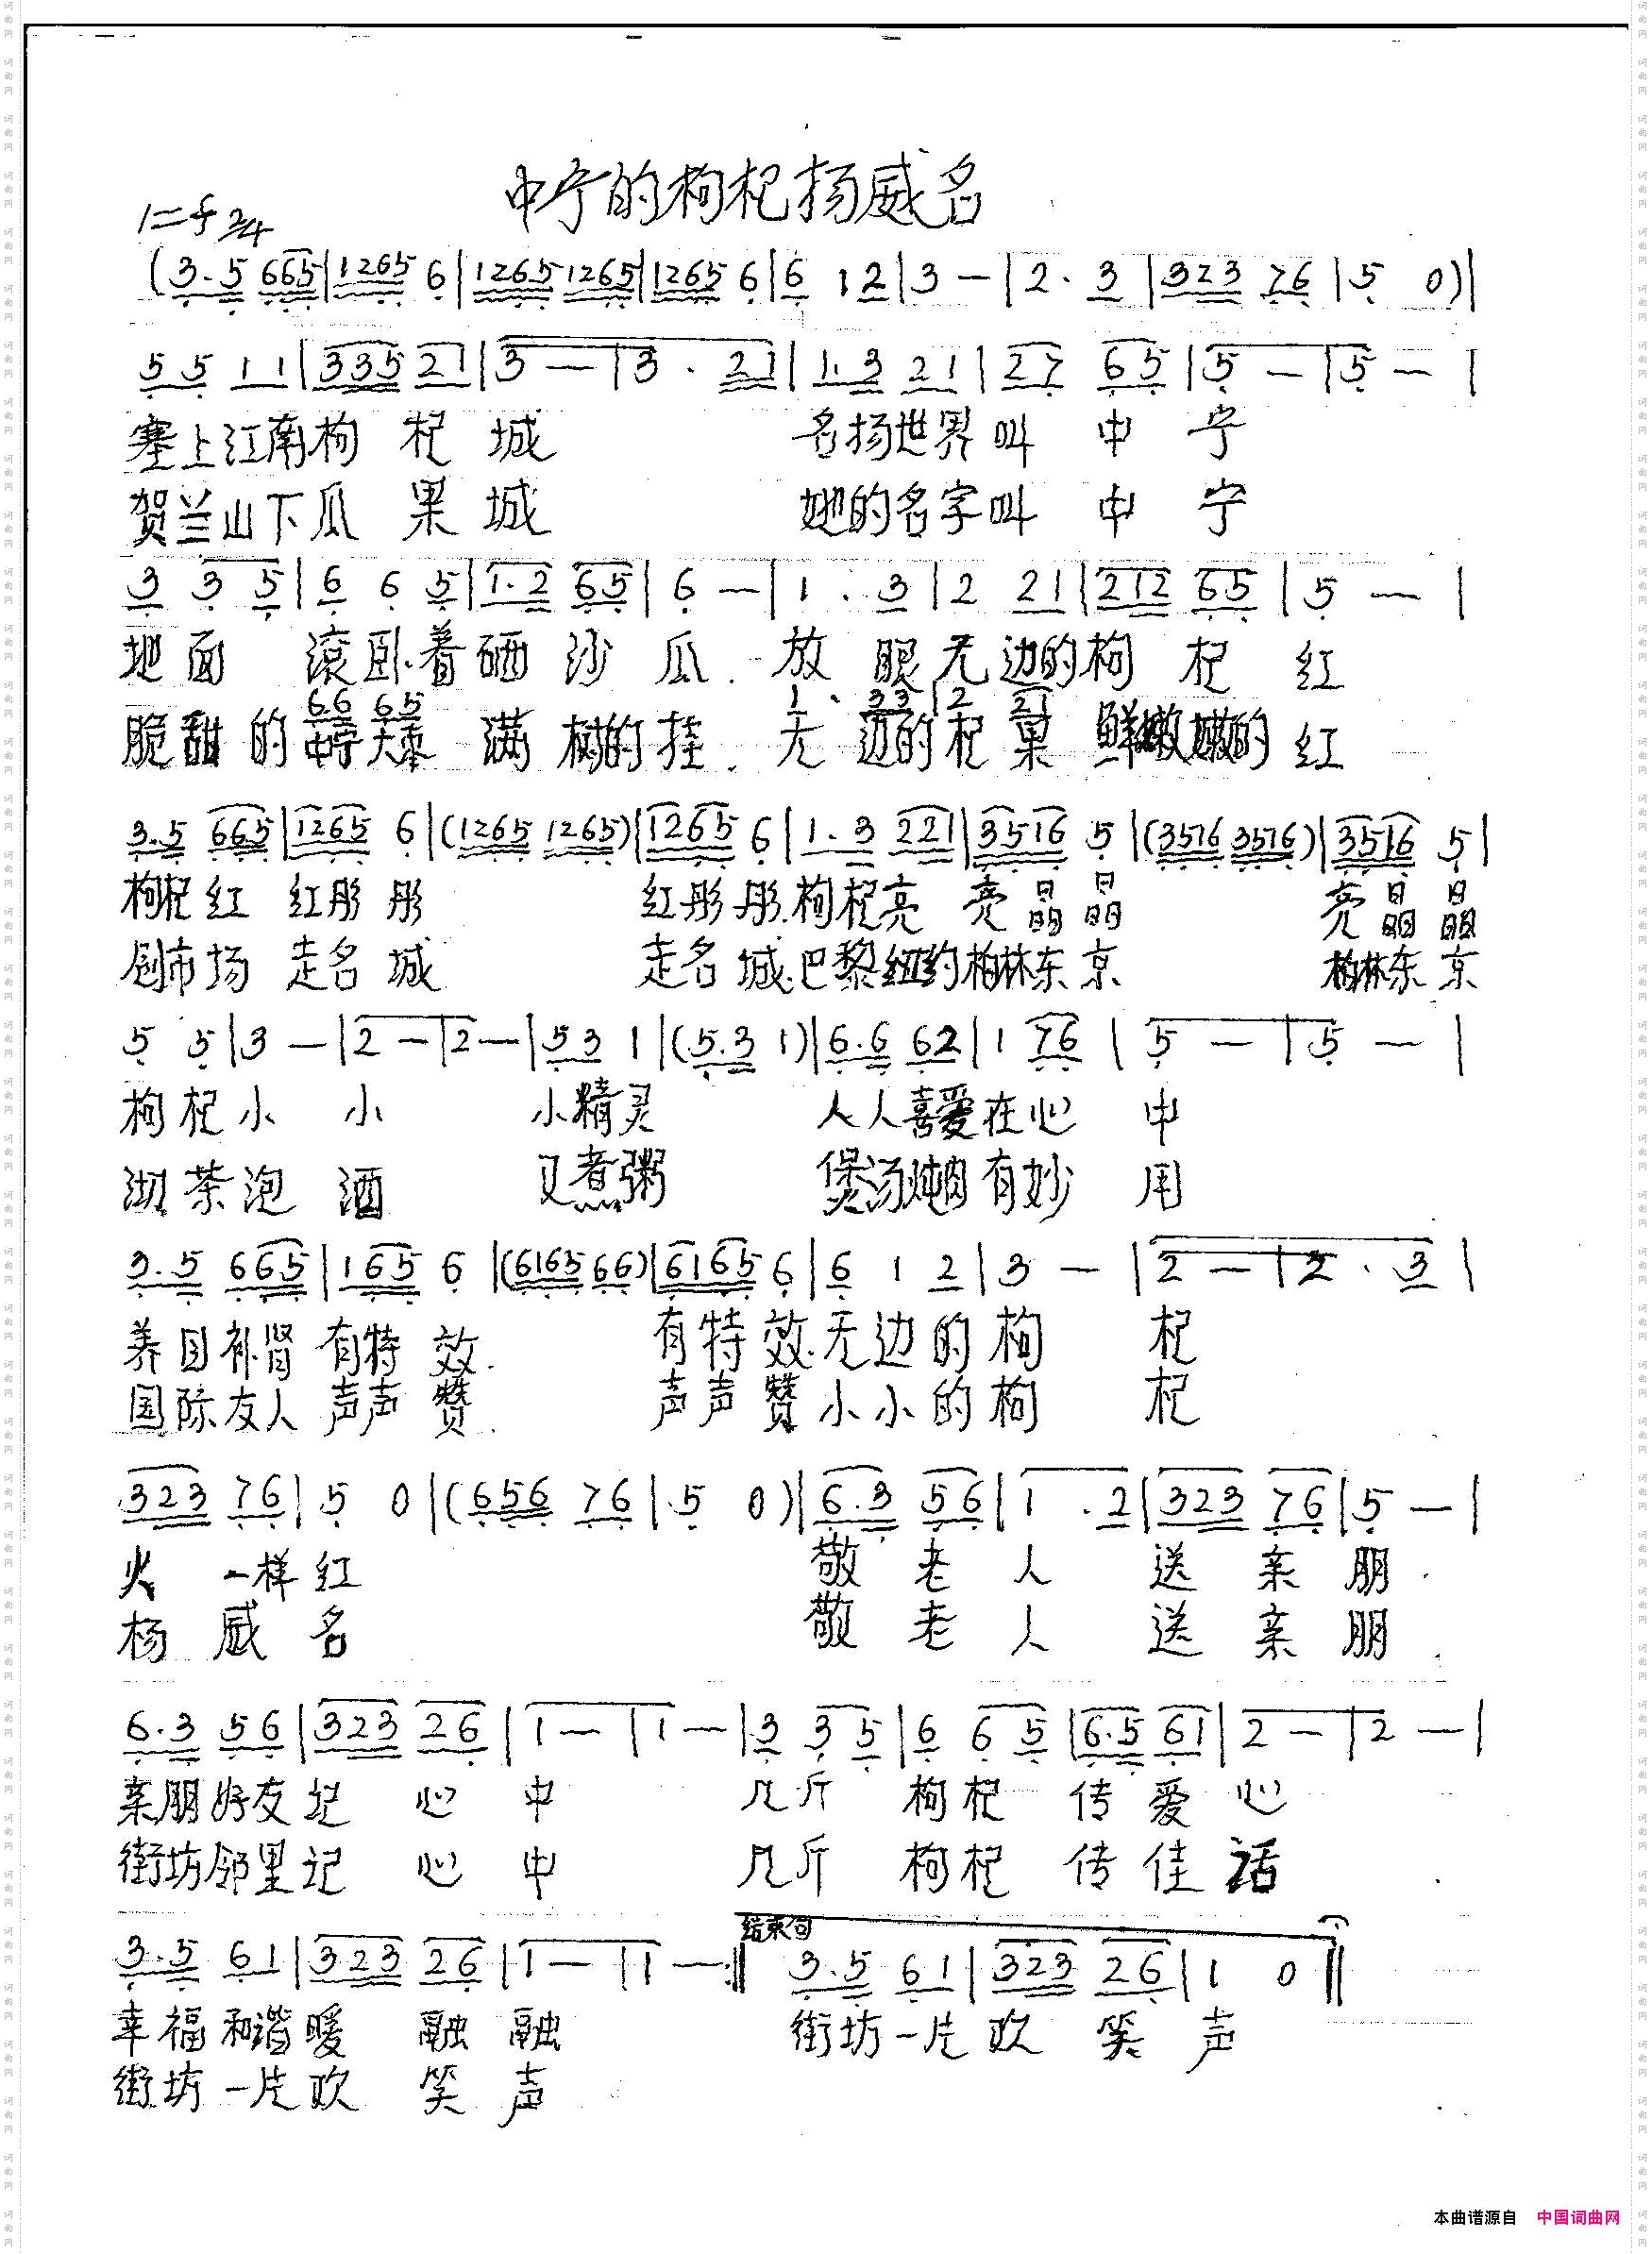 中宁的枸杞扬威名
1=F 2/4
(3.5 665|1265 6|1265 1265|1265 6|6 12|3 -|2. 3|323 76|5 0)|
55 11|335 21|3 -|3. 21|1.3 21|27 65|5 -|5 -|
塞上江南枸 杞 城 名扬世界叫 中 宁
贺兰山下瓜 果 城 她的名字叫 中 宁
3 3 5|6 6 5|1.2 65|6 -|1. 3|2 21|212 65|5 -|
地面 滚卧着硒 沙 瓜. 放 眼无边的枸 杞 红
66 65 1. 33|2 21
脆甜的中宁大枣 满 树的挂. 无 边的杞菓 鲜嫩嫩的红
3.5 665|1265 6|(1265 1265)|1265 6|1.3 221|3516 5|(3516 3516)|3516 5|
枸杞红 红彤彤 红彤彤.枸杞亮 亮晶晶 亮晶晶
创市场 走名城 走名城.巴黎纽约柏林东京 柏林东京
5 5|3 -|2 -|2 -|53 1|(5.3 1)|6.6 62|1 76|5 -|5 -|
枸杞小 小 小精灵 人人喜爱在心 中
沏茶泡 酒 又煮粥 煲汤炖肉有妙 用
3.5 665|165 6|(6165 66)|6165 6|6 1 2|3 -|2 -|2. 3|
养目补肾 有特效. 有特效.无边的枸 杞
国际友人 声声赞. 声声赞小小的枸 杞
323 76|5 0|(656 76|5 0)|6.3 56|1 .2|323 76|5 -|
火 一样红 敬 老 人 送 亲 朋.
杨 威 名 敬 老 人 送 亲 朋.
6.3 56|323 26|1 -|1 -|3 3 5|6 6 5|6.5 61|2 -|2 -|
亲朋好友记 心 中 几斤 枸杞 传爱 心
街坊邻里记 心 中 几斤 枸杞 传佳 话.
结束句
3.5 61|323 26|1 -|1 -:‖ 3.5 61|323 26|1 0‖
幸福和谐暖 融 融 街坊一片欢 笑 声
街坊一片欢 笑 声
本曲谱源自 中国词曲网